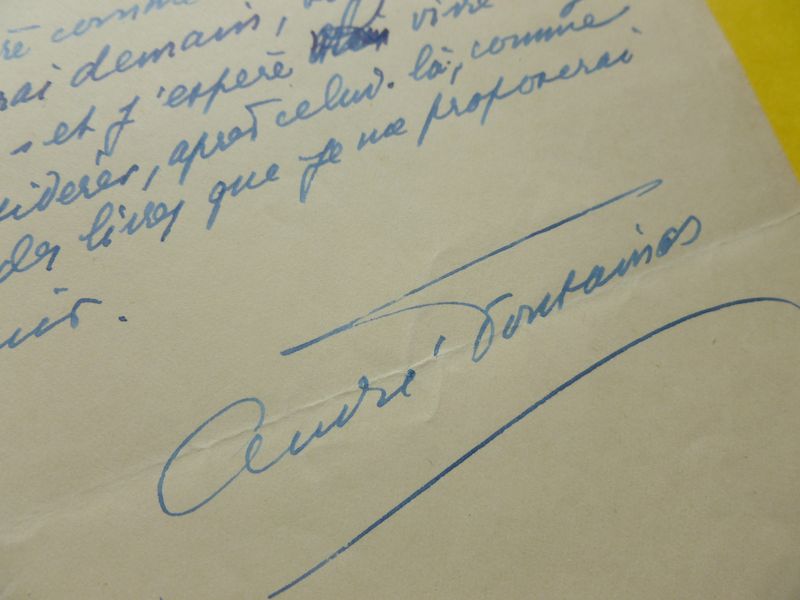 comme
rai demain,
et j'espère vivre
sidérer, après celui-là, comme
des livres que je me proposerai
André Fontainas